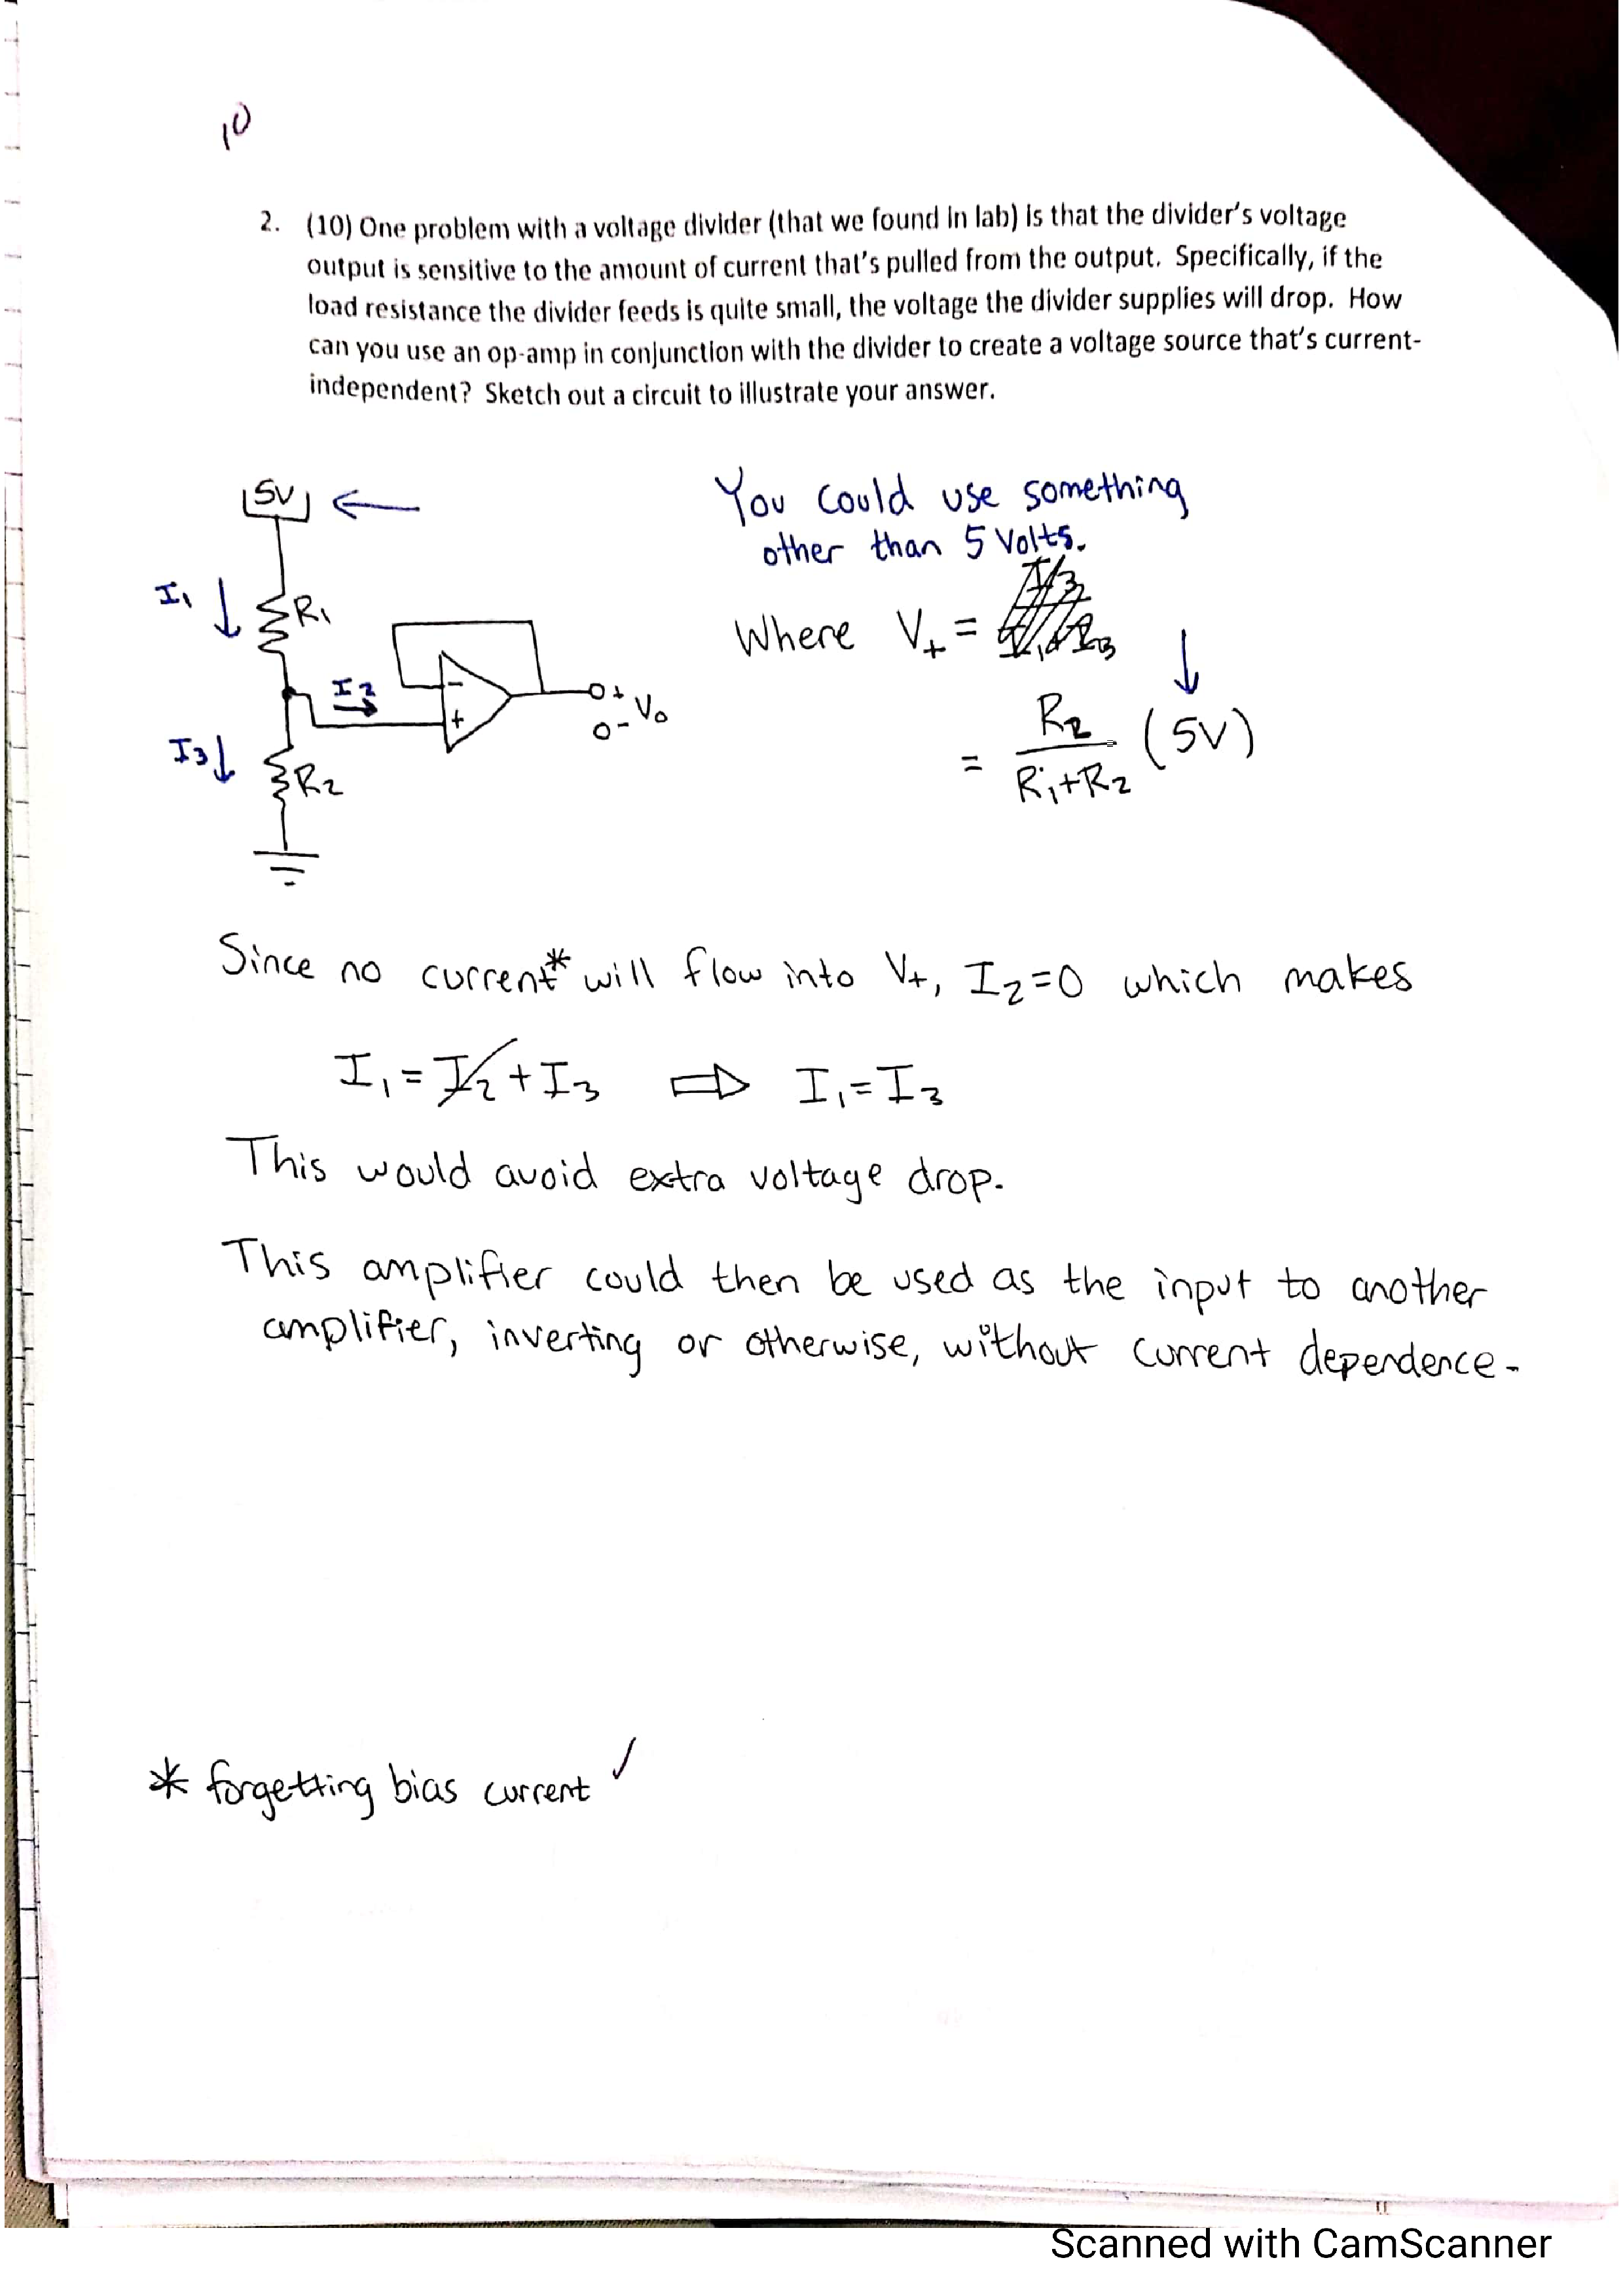 10
2. (10) One problem with a voltage divider (that we found in lab) is that the divider's voltage
output is sensitive to the amount of current that's pulled from the output. Specifically, if the
load resistance the divider feeds is quite small, the voltage the divider supplies will drop. How
can you use an op-amp in conjunction with the divider to create a voltage source that's current-
independent? Sketch out a circuit to illustrate your answer.
5V ←
You could use something
other than 5 Volts.
I₁ ↓ R₁
Where V₊ =
I₂ →
- +
o+ Vo
o-
I₃ ↓ R₂
= R₂ / (R₁+R₂) (5V)
Since no current* will flow into V+, I₂=0 which makes
I₁ = I₂ + I₃ ⇒ I₁ = I₃
This would avoid extra voltage drop.
This amplifier could then be used as the input to another
amplifier, inverting or otherwise, without current dependence.
* forgetting bias current ✓
Scanned with CamScanner